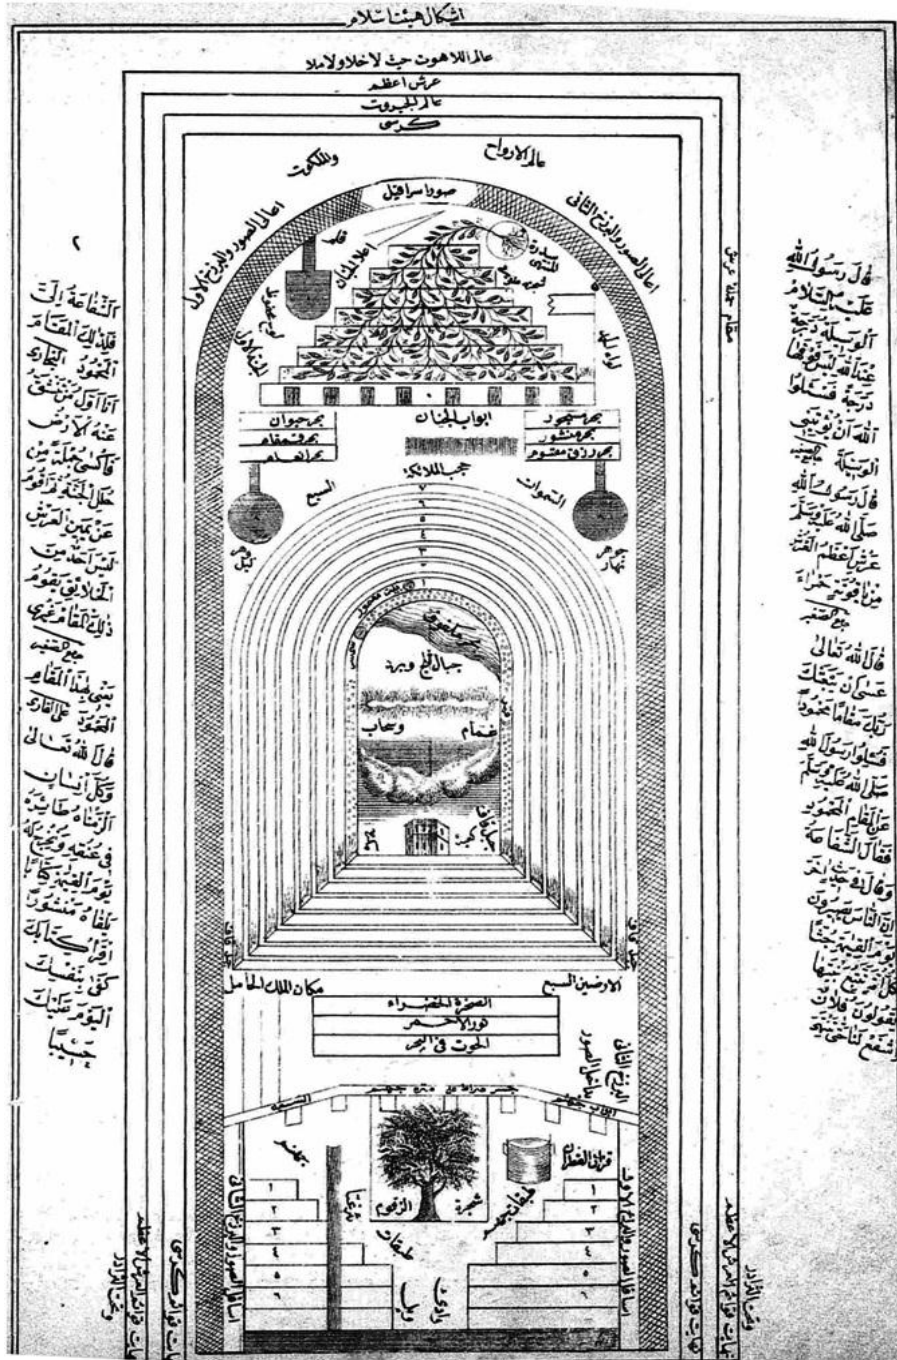 اشكال هيئت اسلام
عالم اللاهوت حيث لاخلا ولاملا
عرش اعظم
عالم الجبروت
كرسى
عالم الارواح
والملكوت
صور اسرافيل
اعالى الصور والبرزخ الثانى
اعالى الصور والبرزخ الاول
قلم
اعلا الجنان
سدرة المنتهى
شجرهٔ طوبا
لوح محفوظ
لواء الحمد
ابواب الجنان
بحر مسجور
بحر حيوان
بحر رزق مقسوم
حجب الملائكة
السموات
السبع
جوهر نهار
جوهر ليل
٧
٦
٥
٤
٣
٢
١
بيت معمور
بحر مكفوف
جبال ثلج وبرد
غمام
وسحاب
جبل قاف
جبل قاف
جبل قاف
الارضين السبع
مكان الملك الحامل
الصخرة الخضراء
ثور الاحمر
الحوت فى البحر
البرزخ الثانى
داخل الصور
جهنم
شجرة
الزقوم
طبقات جهنم
طبقات
وادى
ويل
١
٢
٣
٤
٥
١
٢
٣
٤
٥
اسافل الصور والبرزخ الاول
اسافل الصور والبرزخ الثانى
نهايت قوائم كرسى
نهايت قوائم كرسى
وتحت الثرادر
وتحت الثرادر
قال رسول الله
عليه السلام
الوسيلة درجة
عند الله ليس فوقها
درجة فسئلوا
الله ان يؤتينى
الوسيلة
قال رسول الله
صلى الله عليه وسلم
عرش اعظم
من ياقوتة حمراء
قال الله تعالى
عسى ان يبعثك
ربك مقاما محمودا
فسئلوا رسول الله
صلى الله عليه وسلم
عن المقام المحمود
فقال الشفاعة
وقال فى حديث اخر
ان الناس يصيرون
يوم القيمة جثا
كل امة تتبع نبيها
يقولون يا فلان
اشفع لنا حتى تنتهى
٢
الشفاعة الى
فذلك المقام
المحمود البخارى
انا اول من تنشق
عنه الارض
فاكسى حلة من
حلل الجنة ثم اقوم
عن يمين العرش
ليس احد من
الخلايق يقوم
ذلك المقام غيرى
المحمود على القارى
قال الله تعالى
وكل انسان
الزمناه طائره
فى عنقه ونخرج له
يوم القيمة كتابا
يلقاه منشورا
اقرأ كتابك
كفى بنفسك
اليوم عليك
حسيبا